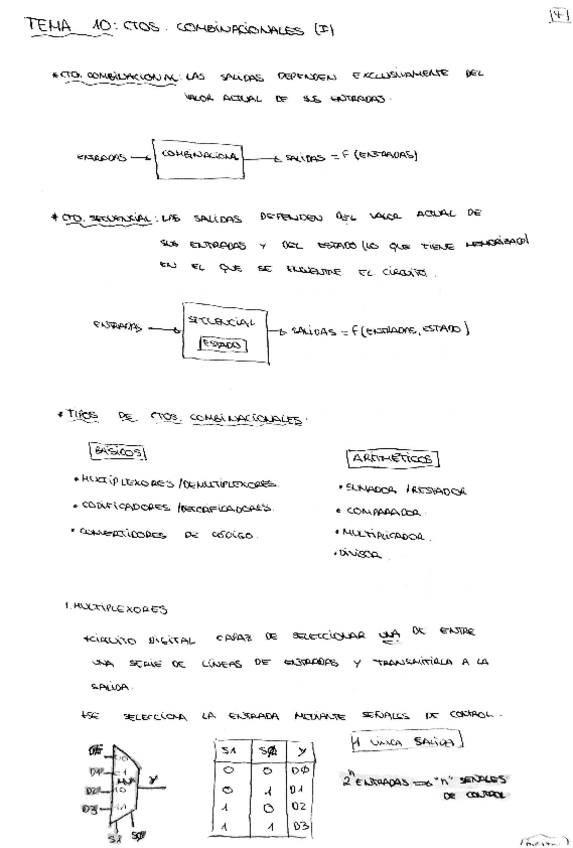 TEMA 10: CTOS. COMBINACIONALES (I)
4
* CTO. COMBINACIONAL: LAS SALIDAS DEPENDEN EXCLUSIVAMENTE DEL
VALOR ACTUAL DE SUS ENTRADAS.
ENTRADAS → COMBINACIONAL → SALIDAS = F (ENTRADAS)
* CTO. SECUENCIAL: LAS SALIDAS DEPENDEN DEL VALOR ACTUAL DE
SUS ENTRADAS Y DEL ESTADO (LO QUE TIENE MEMORIZADO)
EN EL QUE SE ENCUENTRE EL CIRCUITO.
ENTRADAS → SECUENCIAL → SALIDAS = F (ENTRADAS, ESTADO)
ESTADO
* TIPOS DE CTOS. COMBINACIONALES.
BÁSICOS
• MULTIPLEXORES / DEMULTIPLEXORES.
• CODIFICADORES / DECODIFICADORES.
• CONVERTIDORES DE CÓDIGO.
ARITMÉTICOS
• SUMADOR / RESTADOR
• COMPARADOR.
• MULTIPLICADOR.
• DIVISOR.
1. MULTIPLEXORES
* CIRCUITO DIGITAL CAPAZ DE SELECCIONAR UNA DE ENTRE
UNA SERIE DE LÍNEAS DE ENTRADAS Y TRANSMITIRLA A LA
SALIDA.
* SE SELECCIONA LA ENTRADA MEDIANTE SEÑALES DE CONTROL.
DØ
D1
D2
D3
MUX
Y
S1 SØ
S1 SØ Y
0 0 DØ
0 1 D1
1 0 D2
1 1 D3
1 UNICA SALIDA
2ⁿ ENTRADAS ⟹ "n" SEÑALES
DE CONTROL